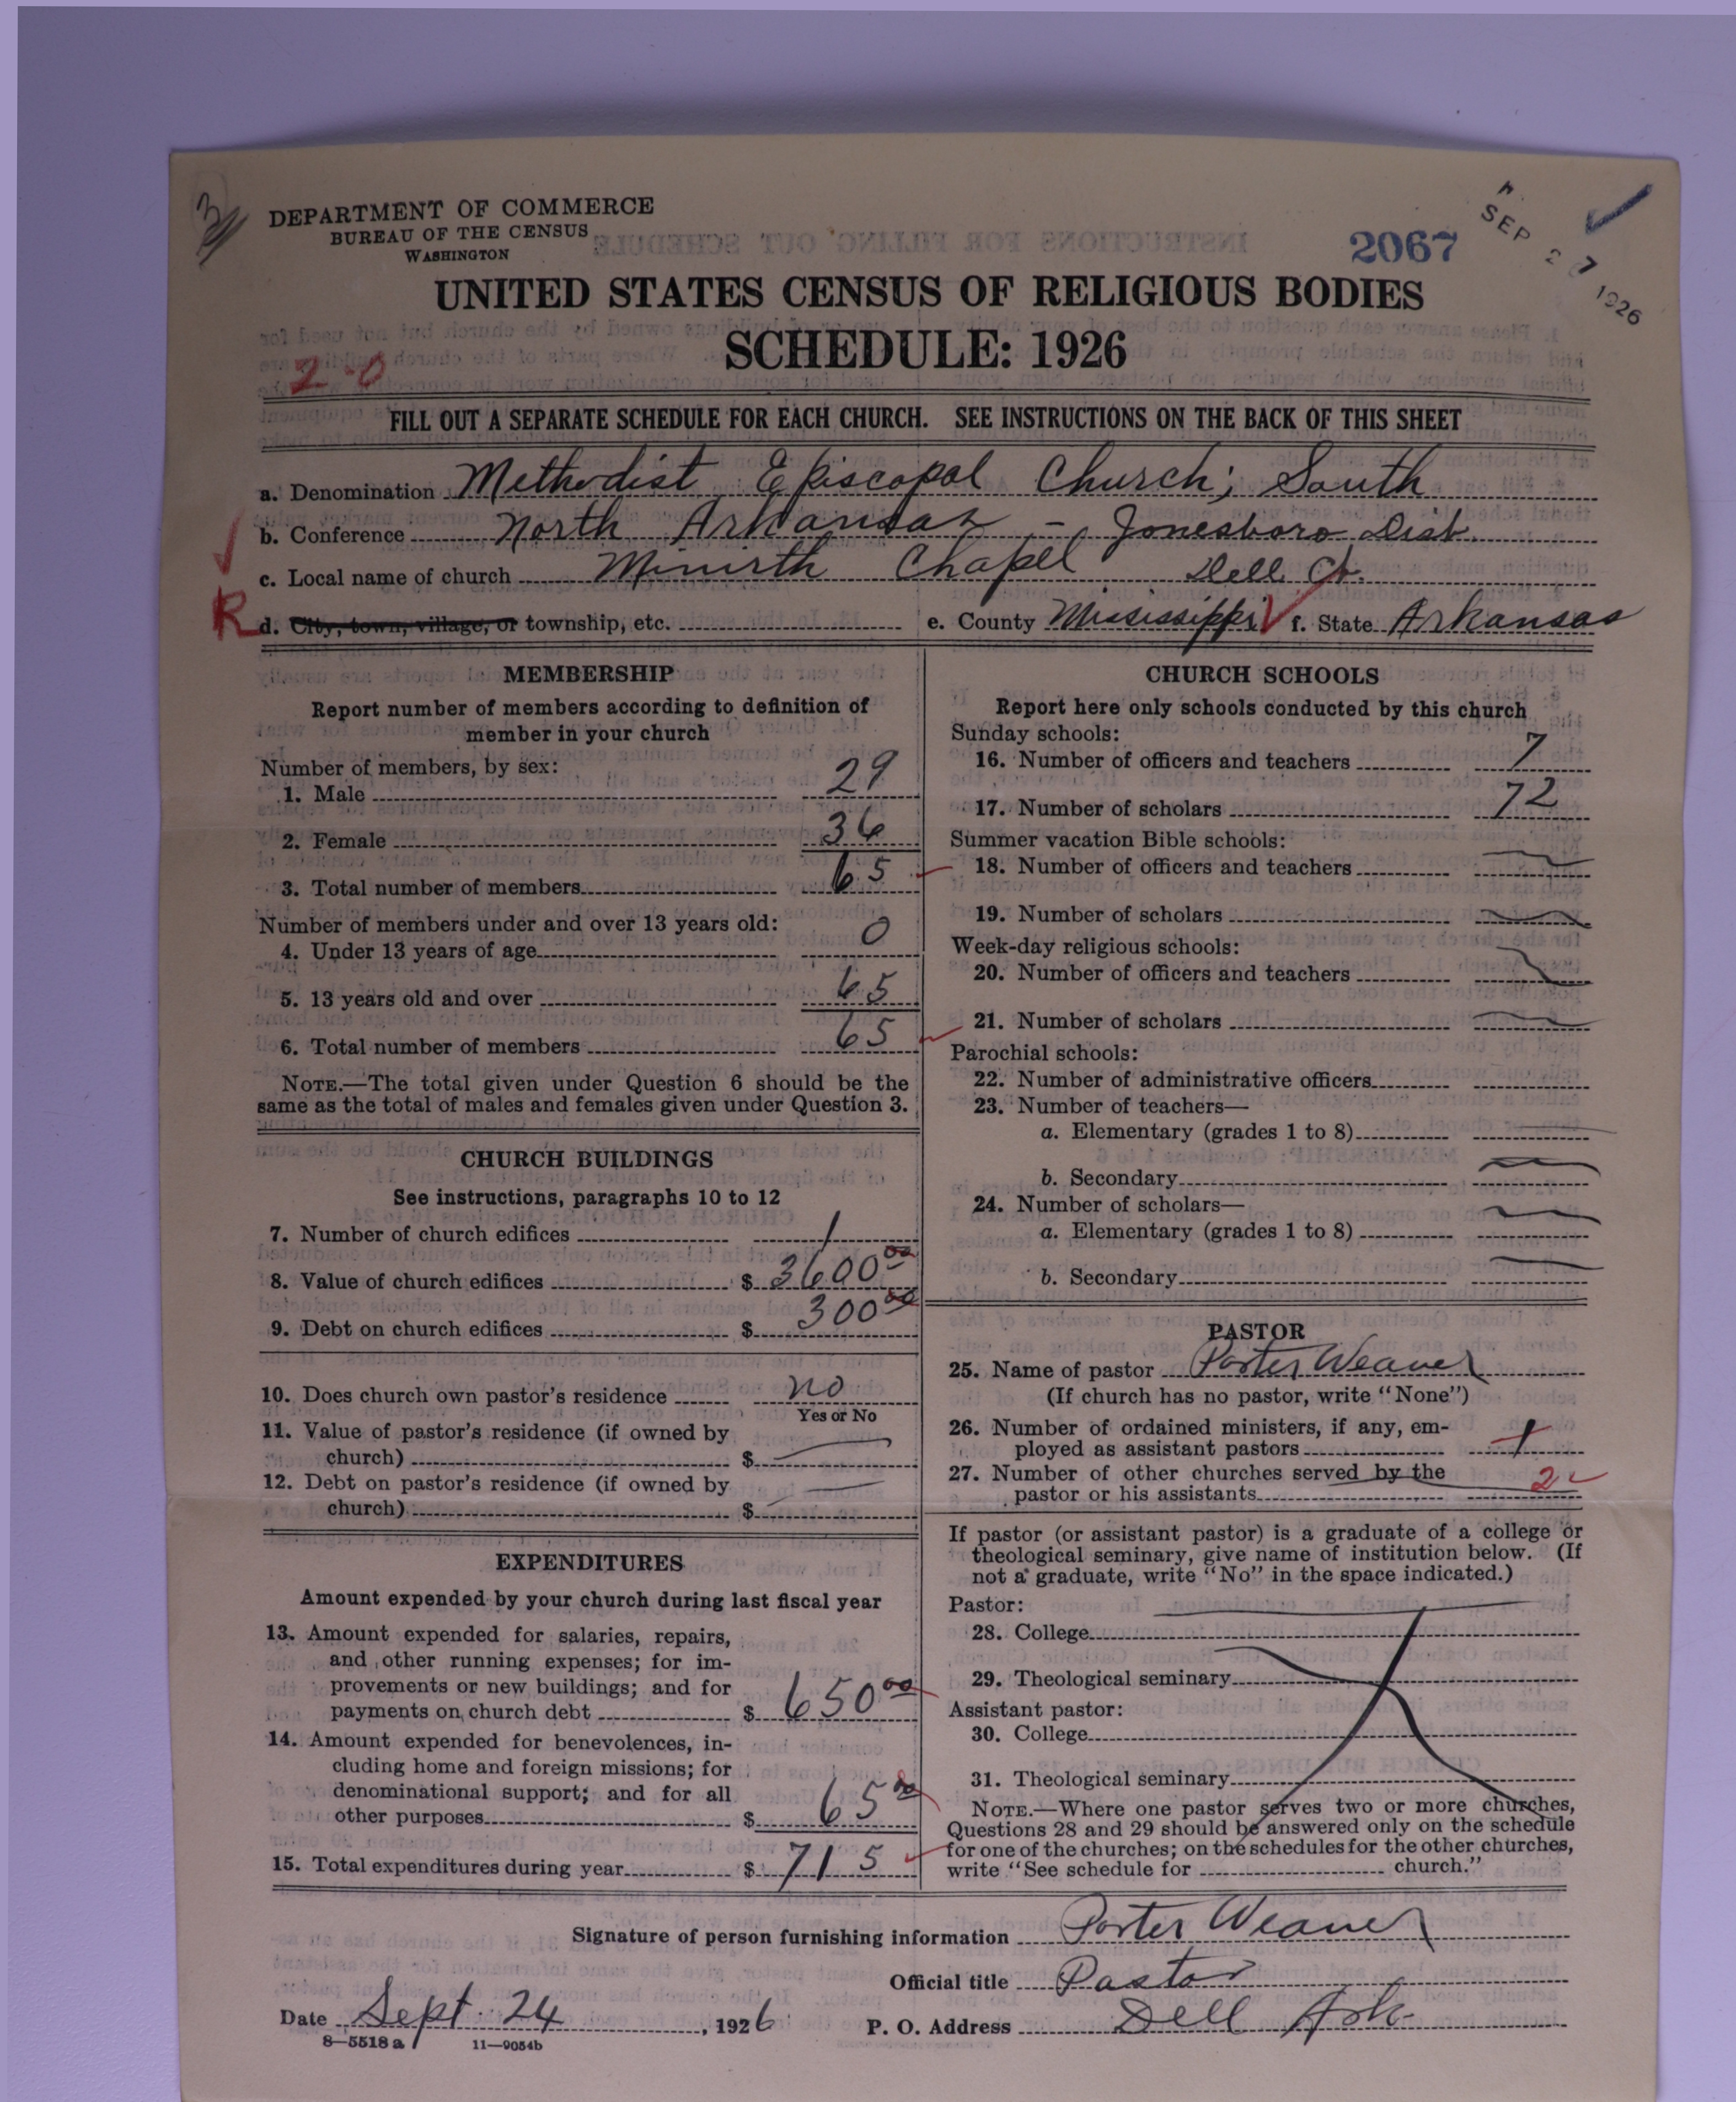 DEPARTMENT OF COMMERCE
BUREAU OF THE CENSUS
WASHINGTON
2067
SEP 27 1926
UNITED STATES CENSUS OF RELIGIOUS BODIES
SCHEDULE: 1926
2-0
FILL OUT A SEPARATE SCHEDULE FOR EACH CHURCH. SEE INSTRUCTIONS ON THE BACK OF THIS SHEET
a. Denomination Methodist Episcopal Church; South
b. Conference North Arkansas - Jonesboro Dist.
c. Local name of church Minirth Chapel Dell Ch.
R d. City, town, village, or township, etc. e. County Mississippi f. State Arkansas
MEMBERSHIP
Report number of members according to definition of
member in your church
Number of members, by sex:
1. Male 29
2. Female 36
3. Total number of members 65
Number of members under and over 13 years old:
4. Under 13 years of age 0
5. 13 years old and over 65
6. Total number of members 65
NOTE.—The total given under Question 6 should be the
same as the total of males and females given under Question 3.
CHURCH BUILDINGS
See instructions, paragraphs 10 to 12
7. Number of church edifices 1
8. Value of church edifices $ 3600 00
9. Debt on church edifices $ 300 00
10. Does church own pastor's residence no
Yes or No
11. Value of pastor's residence (if owned by
church) $ —
12. Debt on pastor's residence (if owned by
church) $ —
EXPENDITURES
Amount expended by your church during last fiscal year
13. Amount expended for salaries, repairs,
and other running expenses; for im-
provements or new buildings; and for
payments on church debt $ 650 00
14. Amount expended for benevolences, in-
cluding home and foreign missions; for
denominational support; and for all
other purposes $ 65 00
15. Total expenditures during year $ 715
CHURCH SCHOOLS
Report here only schools conducted by this church
Sunday schools:
16. Number of officers and teachers 7
17. Number of scholars 72
Summer vacation Bible schools:
18. Number of officers and teachers —
19. Number of scholars —
Week-day religious schools:
20. Number of officers and teachers —
21. Number of scholars —
Parochial schools:
22. Number of administrative officers
23. Number of teachers—
a. Elementary (grades 1 to 8) —
b. Secondary —
24. Number of scholars—
a. Elementary (grades 1 to 8) —
b. Secondary —
PASTOR
25. Name of pastor Porter Weaver
(If church has no pastor, write "None")
26. Number of ordained ministers, if any, em-
ployed as assistant pastors 1
27. Number of other churches served by the
pastor or his assistants 2
If pastor (or assistant pastor) is a graduate of a college or
theological seminary, give name of institution below. (If
not a graduate, write "No" in the space indicated.)
Pastor:
28. College
29. Theological seminary
Assistant pastor:
30. College
31. Theological seminary
NOTE.—Where one pastor serves two or more churches,
Questions 28 and 29 should be answered only on the schedule
for one of the churches; on the schedules for the other churches,
write "See schedule for church."
Signature of person furnishing information Porter Weaver
Official title Pastor
Date Sept. 24, 1926 P. O. Address Dell Ark.
8—5518 a 11—9054b